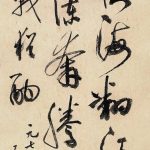 海翻江
瀾奔騰
戰猶酣
元七